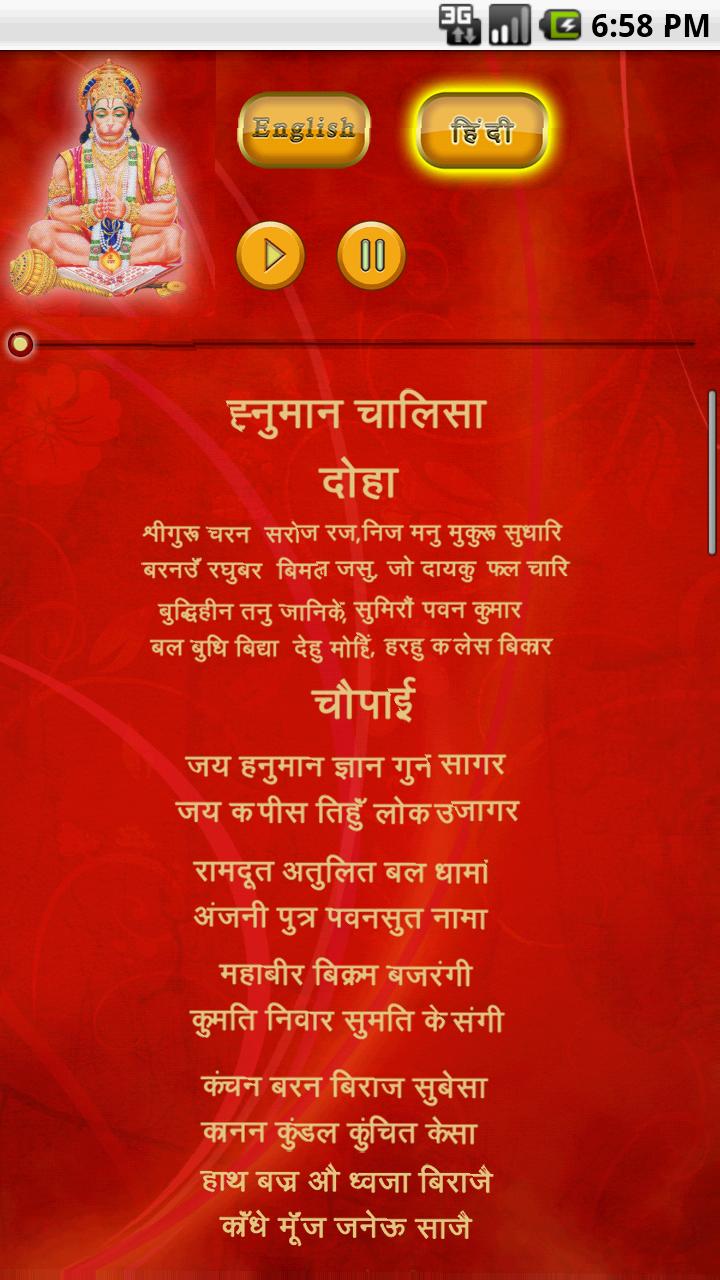 3G 6:58 PM
English हिंदी
हनुमान चालिसा
दोहा
श्रीगुरू चरन सरोज रज,निज मनु मुकुरू सुधारि
बरनउँ रघुबर बिमल जसु, जो दायकु फल चारि
बुद्धिहीन तनु जानिके, सुमिरौं पवन कुमार
बल बुधि बिद्या देहु मोहिं, हरहु कलेस बिकार
चौपाई
जय हनुमान ज्ञान गुन सागर
जय कपीस तिहुँ लोक उजागर
रामदूत अतुलित बल धामां
अंजनी पुत्र पवनसुत नामा
महाबीर बिक्रम बजरंगी
कुमति निवार सुमति के संगी
कंचन बरन बिराज सुबेसा
कानन कुंडल कुंचित केसा
हाथ बज्र औ ध्वजा बिराजै
काँधे मूँज जनेऊ साजै